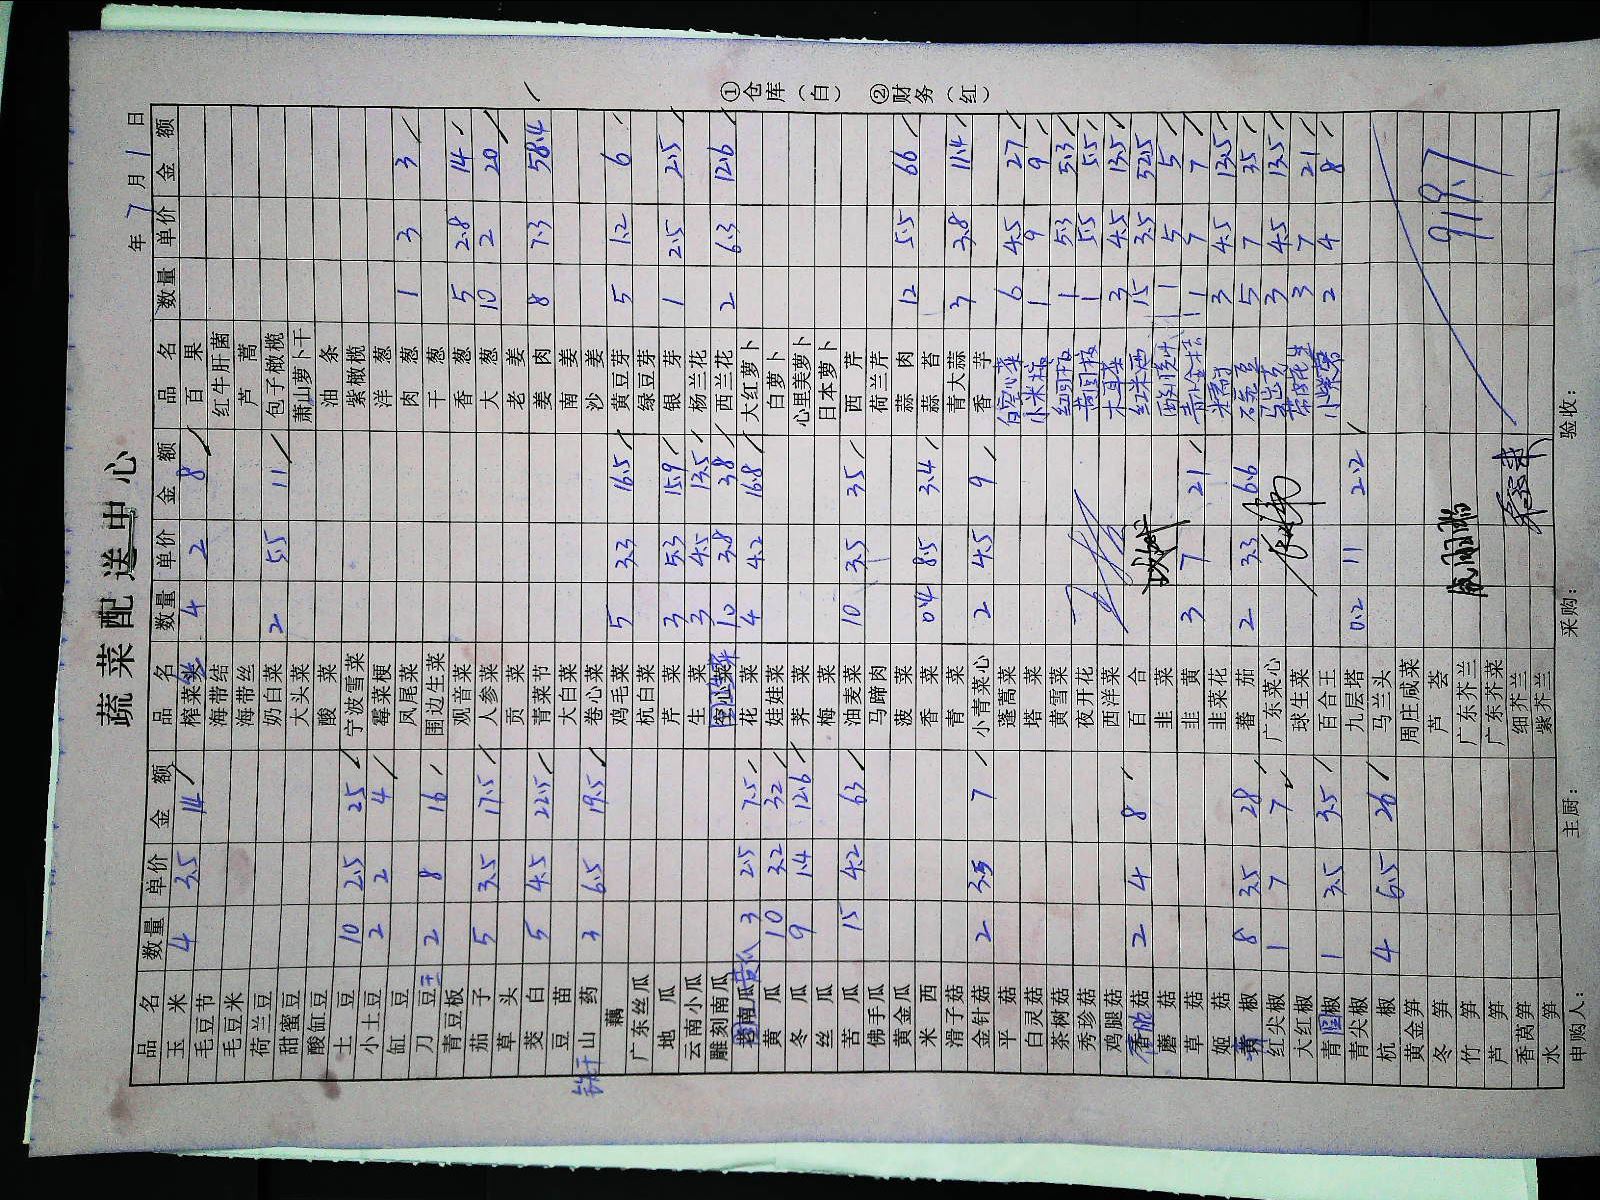 蔬菜配送中心
年 7 月 1 日
品名 数量 单价 金额 品名 数量 单价 金额 品名 数量 单价 金额
玉米 4 3.5 14 榨菜 4 2 8 百果
毛豆节 海带结 红牛肝菌
毛豆米 海带丝 芦蒿
荷兰豆 奶白菜 2 5.5 11 包子橄榄
甜蜜豆 大头菜 萧山萝卜干
酸缸豆 酸菜 油条
土豆 10 2.5 25 宁波雪菜 紫橄榄
小土豆 2 2 4 霉菜梗 洋葱
缸豆 凤尾菜 肉葱 1 3 3
刀豆 2 8 16 围边生菜 干葱
青豆板 观音菜 香葱 5 2.8 14
茄子 5 3.5 17.5 人参菜 大葱 10 2 20
草头 贡菜 老姜
茭白 5 4.5 22.5 青菜节 姜肉 8 7.3 58.4
豆苗 大白菜 南姜
山药 3 6.5 19.5 卷心菜 沙姜
藕 鸡毛菜 5 3.3 16.5 黄豆芽 5 1.2 6
广东丝瓜 杭白菜 绿豆芽
地瓜 芹菜 3 5.3 15.9 银芽 1 2.5 2.5
云南小瓜 生菜 3 4.5 13.5 杨兰花
雕刻南瓜 空心菜 10 3.8 3.8 西兰花 2 6.3 12.6
南瓜 3 2.5 7.5 花菜 4 4.2 16.8 大红萝卜
黄瓜 10 3.2 32 娃娃菜 白萝卜
冬瓜 9 1.4 12.6 荠菜 心里美萝卜
丝瓜 梅菜 日本萝卜
苦瓜 15 4.2 63 油麦菜 10 3.5 35 西芹
佛手瓜 马蹄肉 荷兰芹
黄金瓜 菠菜 蒜肉 12 5.5 66
米西 香菜 0.4 8.5 3.4 蒜苔
滑子菇 青菜 青大蒜 3 3.8 11.4
金针菇 2 3.5 7 小青菜心 2 4.5 9 香芋
平菇 蓬蒿菜 白空心菜 6 4.5 27
白灵菇 塔菜 小米椒 1 9 9
茶树菇 黄雪菜 红圆椒 1 5.3 5.3
秀珍菇 夜开花 黄圆椒 1 5.5 5.5
鸡腿菇 西洋菜 木耳菜 3 4.5 13.5
香菇 2 4 8 百合 红米苋 15 3.5 52.5
蘑菇 韭菜 1 5 5
草菇 韭黄 3 7 21 1 7 7
姬菇 韭菜花 3 4.5 13.5
椒 8 3.5 28 蕃茄 2 3.3 6.6 5 7 35
红尖椒 1 7 7 广东菜心 3 4.5 13.5
大红椒 球生菜 3 7 21
青圆椒 1 3.5 3.5 百合王 2 4 8
青尖椒 九层塔 0.2 11 2.2
杭椒 4 6.5 26 马兰头
黄金笋 周庄咸菜
冬笋 芦荟 919.7
竹笋 广东芥兰
芦笋 广东芥菜
香莴笋 细芥兰
水笋 紫芥兰
申购人： 主厨： 采购： 验收：
①仓库（白） ②财务（红）